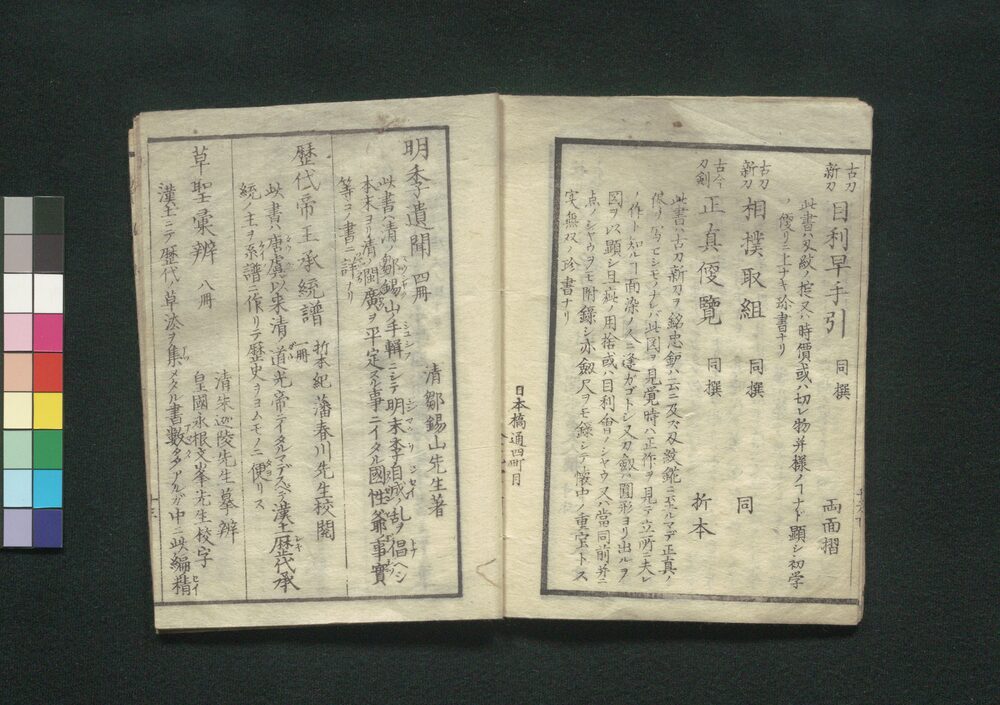 古刀新刀 目利早手引 同撰 両面摺
此書ハ刃紋ノ掟又ハ時價或ハ切レ物并様ノヿナド顕シ初学
ノ便リニ上ナキ珍書ナリ
古刀新刀 相撲取組 同撰 同
古今刀剣 正真便覽 同撰 折本
此書ハ古刀新刀ヲ銘忠釼ハ云ニ及ス刃紋鑢ニ至ルマデ正真ノ
ノ作ト知ルヿ面染ノ人ニ逢ガゴトシ又刀釼ハ圓形ヨリ出ルヲ
図ヲ以顕シ且疵ノ用捨或ハ目利會ノシヤウ又ハ當同前并ニ
点ノシヤウヲモ附録シ亦釼尺ヲモ録シテ懐中ノ重宝トス
実ニ無双ノ珍書ナリ
日本橋通四町目
明季遺聞 四冊 清鄒錫山先生著
此書ハ清ノ鄒錫山手輯ニシテ明末李自成乱ヲ倡ヘシ
本末ヨリ清ノ閩廣ヲ平定スル事ニイタル國性爺事實
等コノ書ニ詳ナリ
歴代帝王承統譜 折本一冊 紀藩春川先生校閲
此書ハ唐虞以来清ノ道光帝ニイタルマデスベテ漢土歴代承
統ノ主ヲ系譜ニ作リテ歴史ヲヨムモノニ便リス
草聖彙辨 八冊 清朱迦陵先生摹辨
皇國永根文峯先生校字
漢土ニテ歴代ノ草法ヲ集メタル書數多アルガ中ニ此編精